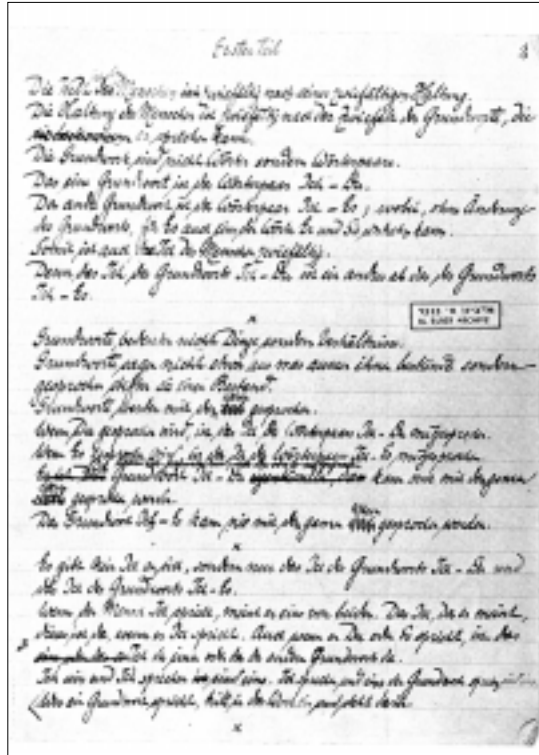 Erster Teil
Die Welt des Menschen ist zwiefältig nach seiner zwiefältigen Haltung.
Die Haltung des Menschen ist zwiefältig nach der Zwiefalt der Grundworte, die
er sprechen kann.
Die Grundworte sind nicht Wörter sondern Wörterpaare.
Das eine Grundwort ist das Wörterpaar Ich – Du.
Das andre Grundwort ist das Wörterpaar Ich – Es; wobei, ohne Änderung
des Grundworts, für Es auch eins der Wörter Er und Sie
Somit ist auch das Ich des Menschen zwiefältig.
Denn das Ich des Grundworts Ich – Du ist ein andres als das des Grundworts
Ich – Es.
x
Grundworte nicht Dinge, sondern Verhältnisse.
Grundworte sagen nicht etwas aus was aussen ihnen bestünde sondern
gesprochen stiften sie einen Bestand.
Grundworte werden mit dem gesprochen.
Wenn Du gesprochen wird, ist das Ich des Wörterpaars Ich – Du mitgesprochen.
Wenn Es gesprochen wird, ist das Ich des Wörterpaars Ich – Es mitgesprochen.
Grundwort Ich – Du kann nur mit dem ganzen
gesprochen werden.
Das Grundwort Ich – Es kann nie mit dem ganzen gesprochen werden.
x
Es gibt kein Ich an sich, sondern nur das Ich des Grundworts Ich – Du und
das Ich des Grundworts Ich – Es.
Wenn der Mensch Ich spricht, meint er eins von beiden. Das Ich, das er meint,
dieses ist da, wenn er Ich spricht. Auch wenn er Du oder Es spricht, ist das
Ich des einen oder das des andern Grundworts da.
Ich sein und Ich sprechen sind eins. Ich sprechen und eins der Grundworte sprechen
Wer ein Grundwort spricht, tritt in das Wort ein und steht darin.
x